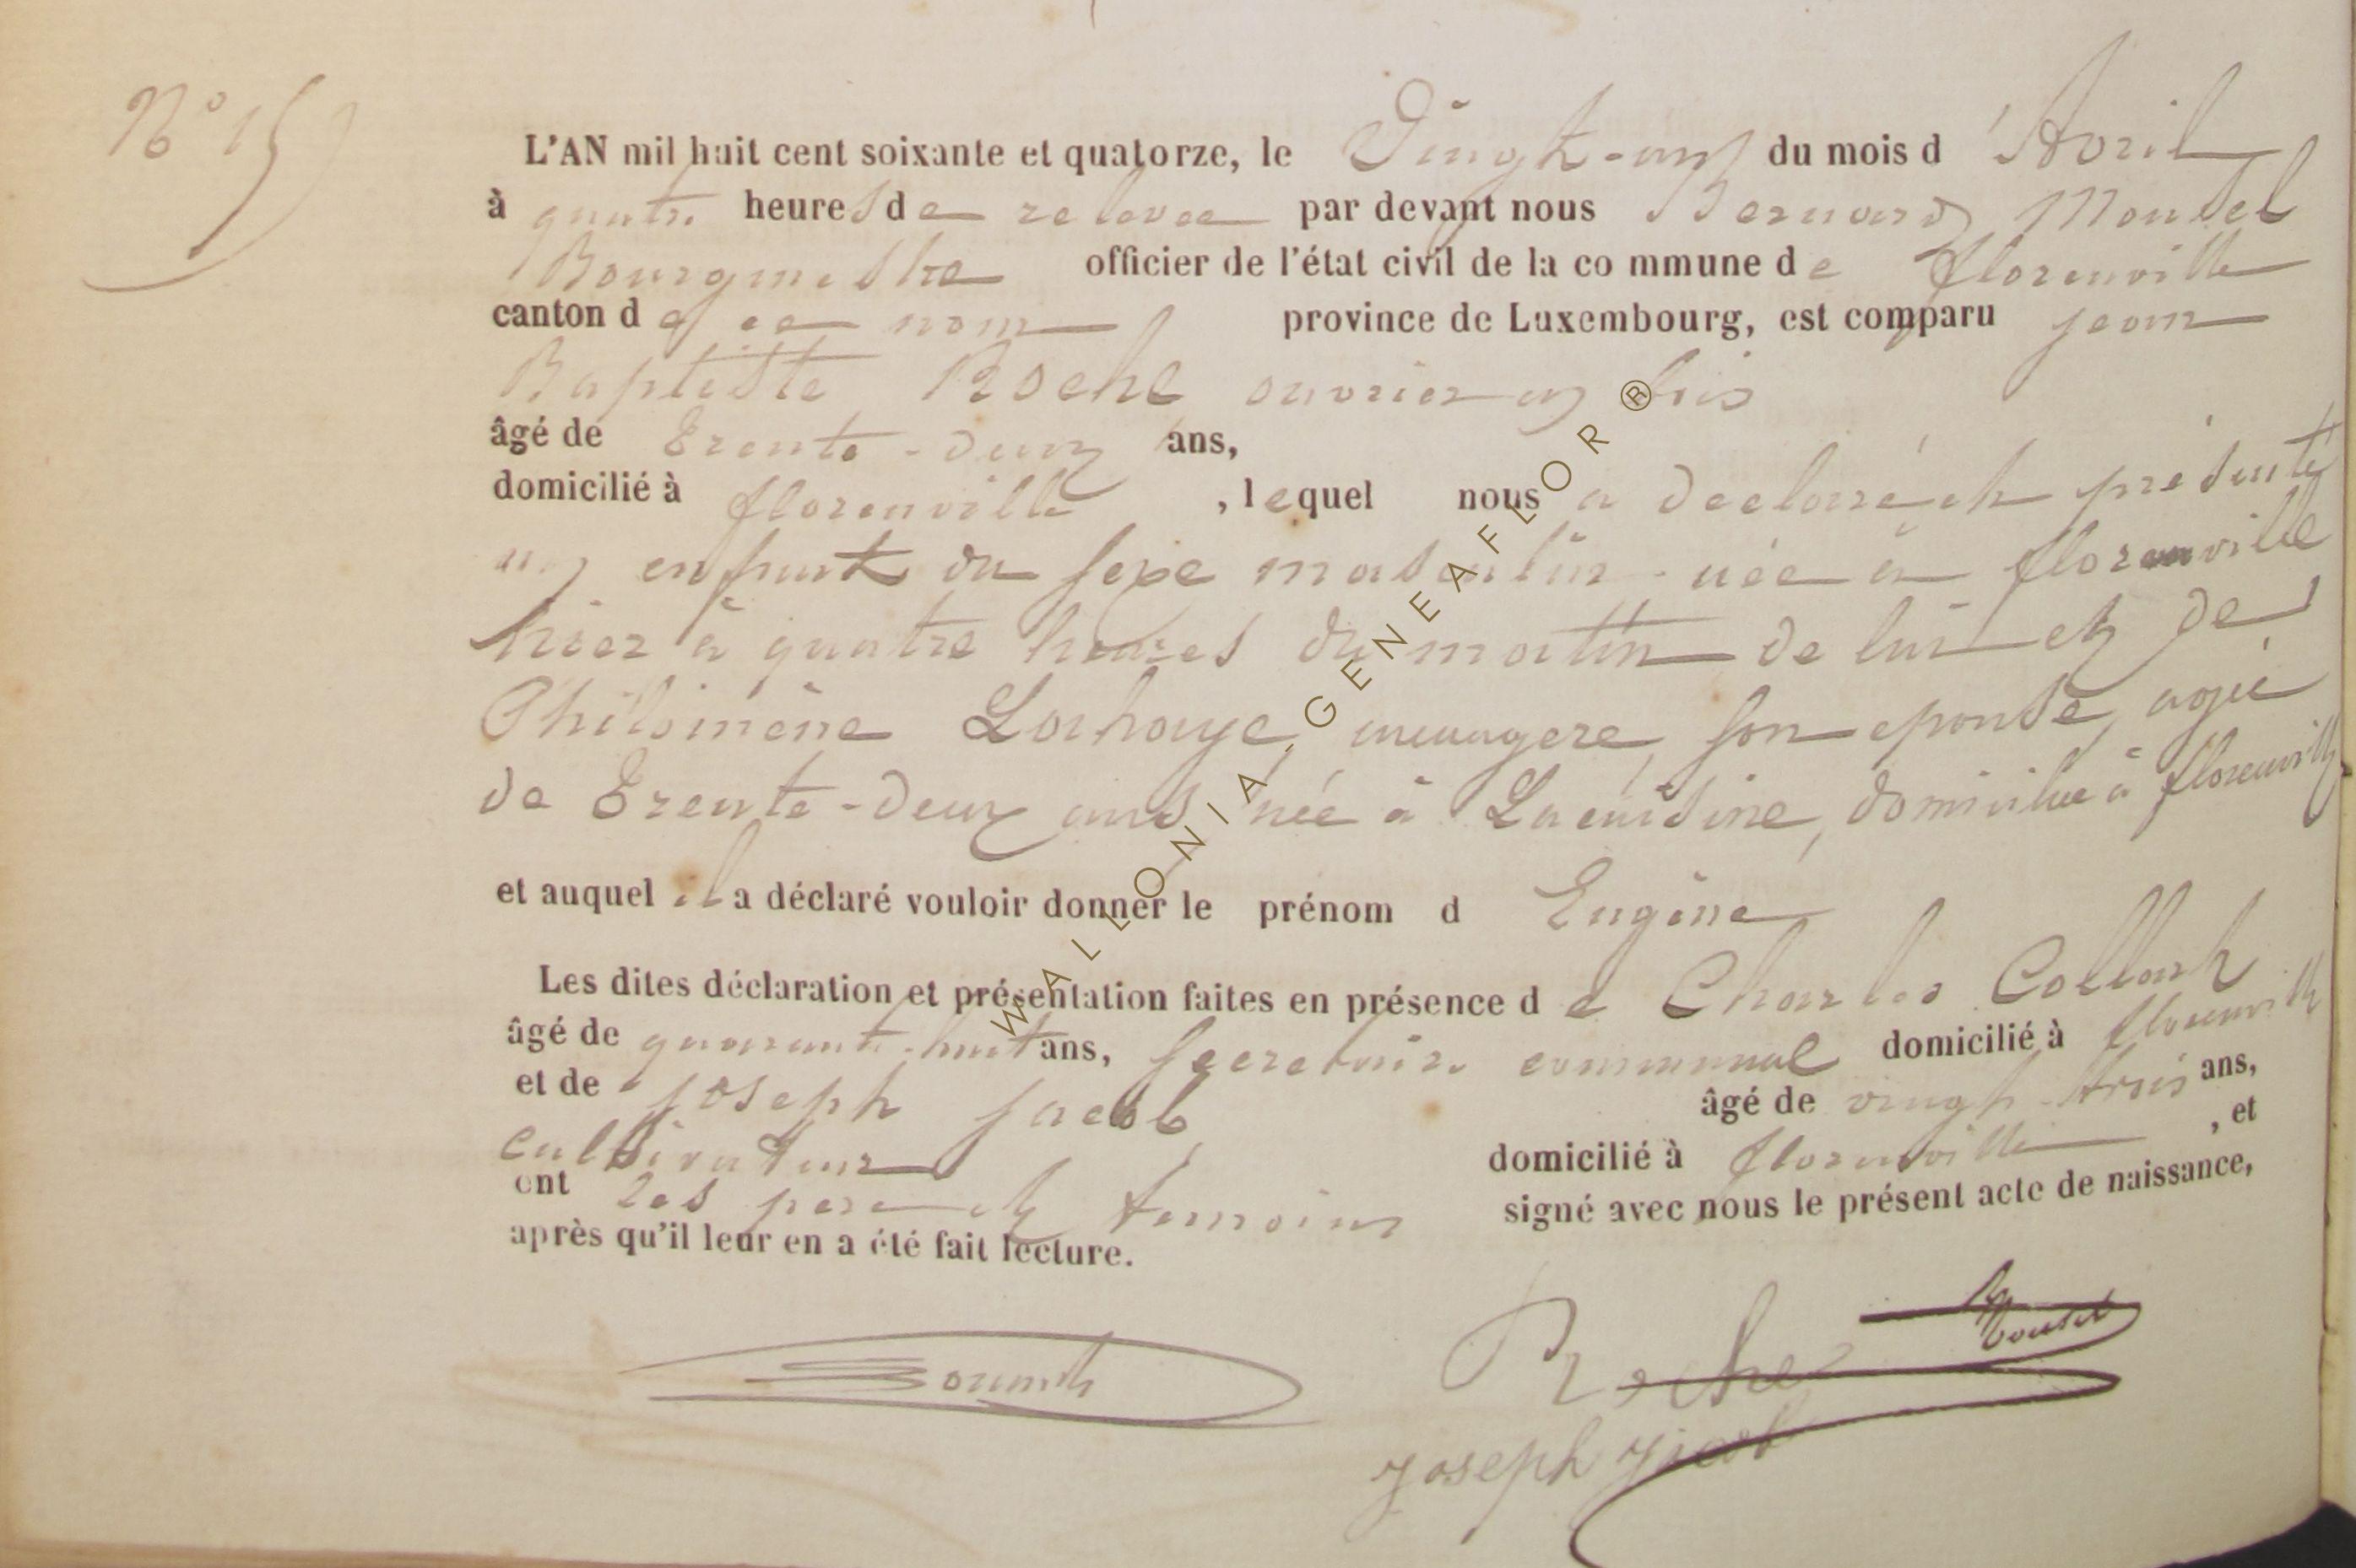 N° 15
L'AN mil huit cent soixante et quatorze, le Vingt-un du mois d'Avril
à quatre heures de relevee par devant nous Bernard Moutel
Bourgmestre officier de l'état civil de la co mmune de florenville
canton de ce nom province de Luxembourg, est comparu jean
Baptiste Roche ouvrier en bois
âgé de Trente-deux ans,
domicilié à florenville, lequel nous a declaré et présenté
un enfant du sexe masculin née à florenville
hier à quatre heures du matin de lui et de
Philomène Lahaye, menagere, son epouse, agée
de Trente-deux ans née à Lacuisine, domiciliée à florenville
et auquel il a déclaré vouloir donner le prénom d Eugène
Les dites déclaration et présentation faites en présence de Charles Collart
âgé de quarante-huit ans, secretaire communal domicilié à florenville
et de joseph jacob, âgé de vingt-trois ans,
cultivateur domicilié à florenville, et
ont les pere et temoins signé avec nous le présent acte de naissance,
après qu'il leur en a été fait lecture.
Moutel
Roche
Joseph Jacob
WALLONIA-GENEAFLOR®